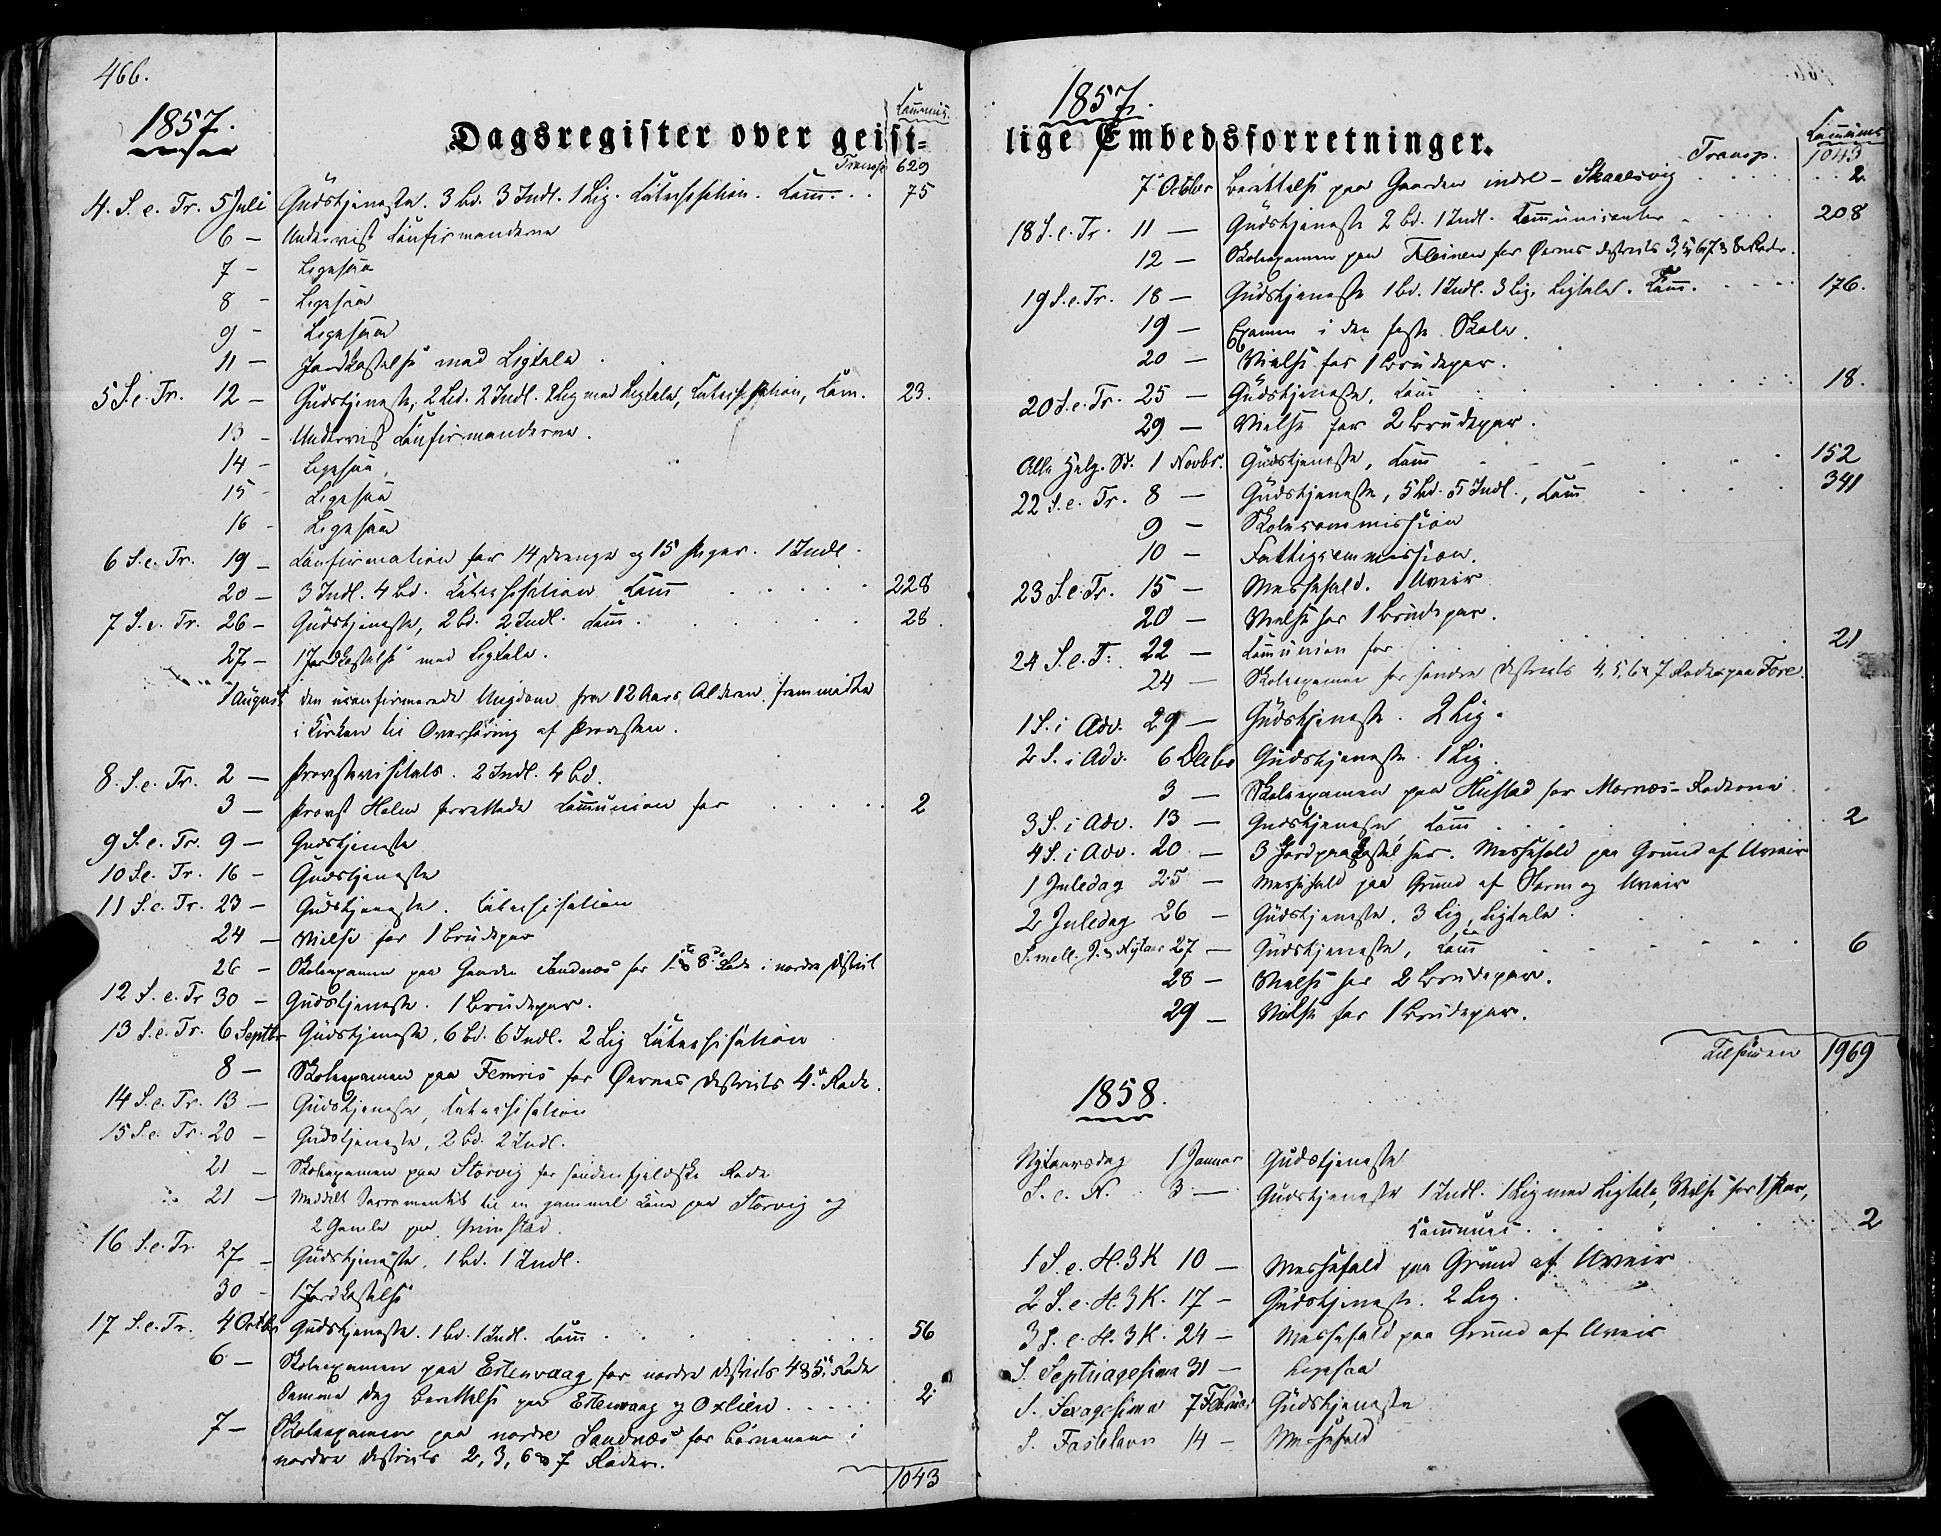 466.
1857.
Dagsregister over geist-
Commu̅n.
Transp. 629
4. S. e. Tr. 5 Juli Gudstjeneste. 3 Bd. 3 Indl. 1 Lig. Catechisation. Com̅. . . 75
6 — Undervist Confirmanderne
7 — Ligesaa
8 — Ligesaa
9 — Ligesaa
11 — Jordkastelse med Ligtale.
5 S. e. Tr. 12 — Gudstjeneste, 2 Bd. 2 Indl. 2 Lig med Ligtale, Catechisation, Com. 23.
13 — Undervist Confirmanderne.
14 — Ligesaa
15 — Ligesaa
16 — Ligesaa
6 S. e. Tr. 19 — Confirmation for 14 Drenge og 15 Piger. 1 Indl.
20 — 3 Indl. 4 Bd. Catechisation Com̅ 228
7 S. e. Tr. 26 — Gudstjeneste, 2 Bd. 2 Indl. Com̅. 28.
27 — 1 Jordkastelse med Ligtale.
1 August Den uconfirmerede Ungdom fra 12 Aars Alderen fremmødte
i Kirken til Overhøring af Provsten.
8. S. e. Tr. 2 — Provstevisitats. 2 Indl. 4 Bd.
3 — Provst Holm forrettede Communion for . . . . 2
9 S. e. Tr. 9 — Gudstjeneste
10 S. e. Tr. 16 — Gudstjeneste
11 S. e. Tr. 23 — Gudstjeneste. Catechisation
24 — Vielse for 1 Brudepar
26 — Skoleexamen paa Gaarden Sandnes for 1ste & 8de Rode i nordre District
12 S. e. Tr 30 — Gudstjeneste. 1 Brudepar.
13 S. e. Tr. 6 Septbr Gudstjeneste, 6 Bd. 6 Indl. 2 Lig Catechisation
8 — Skoleexamen paa Femris for Øernes Districts 4de Rode.
14 S. e. Tr. 13 — Gudstjeneste, Catechisation
15 S. e. Tr. 20 — Gudstjeneste, 2 Bd. 2 Indl.
21 — Skoleexamen paa Storvig for søndenfjeldske Rode
21 — Meddelt Sacramentet til en gammel Kone paa Storvig og
2 Gamle paa Grimstad.
16 S. e. Tr 27 — Gudstjeneste, 1 Bd. 1 Indl.
30 — 1 Jordkastelse
17 S. e. Tr. 4 Octbr Gudstjeneste. 1 Bd. 1 Indl. Com̅ . . . 56
6 — Skoleexamen paa Estenvaag for nordre Districts 4 & 5te Rode
Samme Dag Berettelse paa Estenvaag og Oxlien . . . . . 2
7 — Skoleexamen paa nordre Sandnæs for Børnene i
nordre Districts 2, 3, 6 & 7 Roder.
1043
1857.
lige Embedsforretninger.
Commu̅n.
Transp. 1043
7 Octbr Berettelse paa Gaarden indre-Skaalsvig . . . . 2
18 S. e. Tr. 11 — Gudstjeneste 2 Bd. 1 Indl. Communicanter . . . 208
12 — Skoleexamen paa Fleinen for Øernes Districts 3, 5, 6, 7 & 8 Roder.
19 S. e. Tr. 18 — Gudstjeneste 1 Bd. 1 Indl. 3 Lig, Ligtale. Com̅. . . . 176.
19 — Examen i den faste Skole.
20 — Vielse for 1 Brudepar.
20 S. e. Tr. 25 — Gudstjeneste, Com̅ . . . 18.
29 — Vielse for 2 Brudepar.
Alle Helg. D. 1 Novbr. Gudstjeneste, Com̅ . . . 152
22 S. e. Tr. 8 — Gudstjeneste, 5 Bd. 5 Indl., Com̅ . . . 341
9 — Skolecommission
10 — Fattigcommission.
23 S. e. Tr. 15 — Messefald. Uveir
20 — Vielse for 1 Brudepar.
24 S. e. T. 22 — Communion for . . . 21
24 — Skoleexamen for søndre Districts 4, 5, 6 & 7 Roder paa Fore.
1 S. i Adv. 29 — Gudstjeneste. 2 Lig.
2 S. i Adv. 6 Decbr Gudstjeneste. 1 Lig.
3 — Skoleexamen paa Hustad for Mornæs-Roderne.
3 S. i Adv. 13 — Gudstjeneste, Com̅ . . . 2
4 S. i Adv. 20 — 3 Jordpaakastelser. Messefald paa Grund af Uveir
1 Juledag 25 — Messefald paa Grund af Storm og Uveir
2 Juledag 26 — Gudstjeneste. 3 Lig, Ligtale.
S. mell. J. & Nytaar 27 — Gudstjeneste, Com̅ . . . 6
28 — Vielse for 2 Brudepar.
29 — Vielse for 1 Brudepar.
Tilsamen 1969
1858.
Nytaarsdag 1 Januar Gudstjeneste
S. e. N. 3 — Gudstjeneste 1 Indl. 1 Lig med Ligtale, Vielse for 1 Par,
Commun. . . . 2
1 S. e. H. 3 K 10 — Messefald paa Grund af Uveir
2 S. e. H. 3 K. 17 — Gudstjeneste. 2 Lig.
3 S. e. H. 3 K. 24 — Messefald paa Grund af Uveir
S. Septuagesima 31 — Ligesaa
S. Sexagesima 7 Februar Gudstjeneste
S. Fastelavn 14 — Messefald